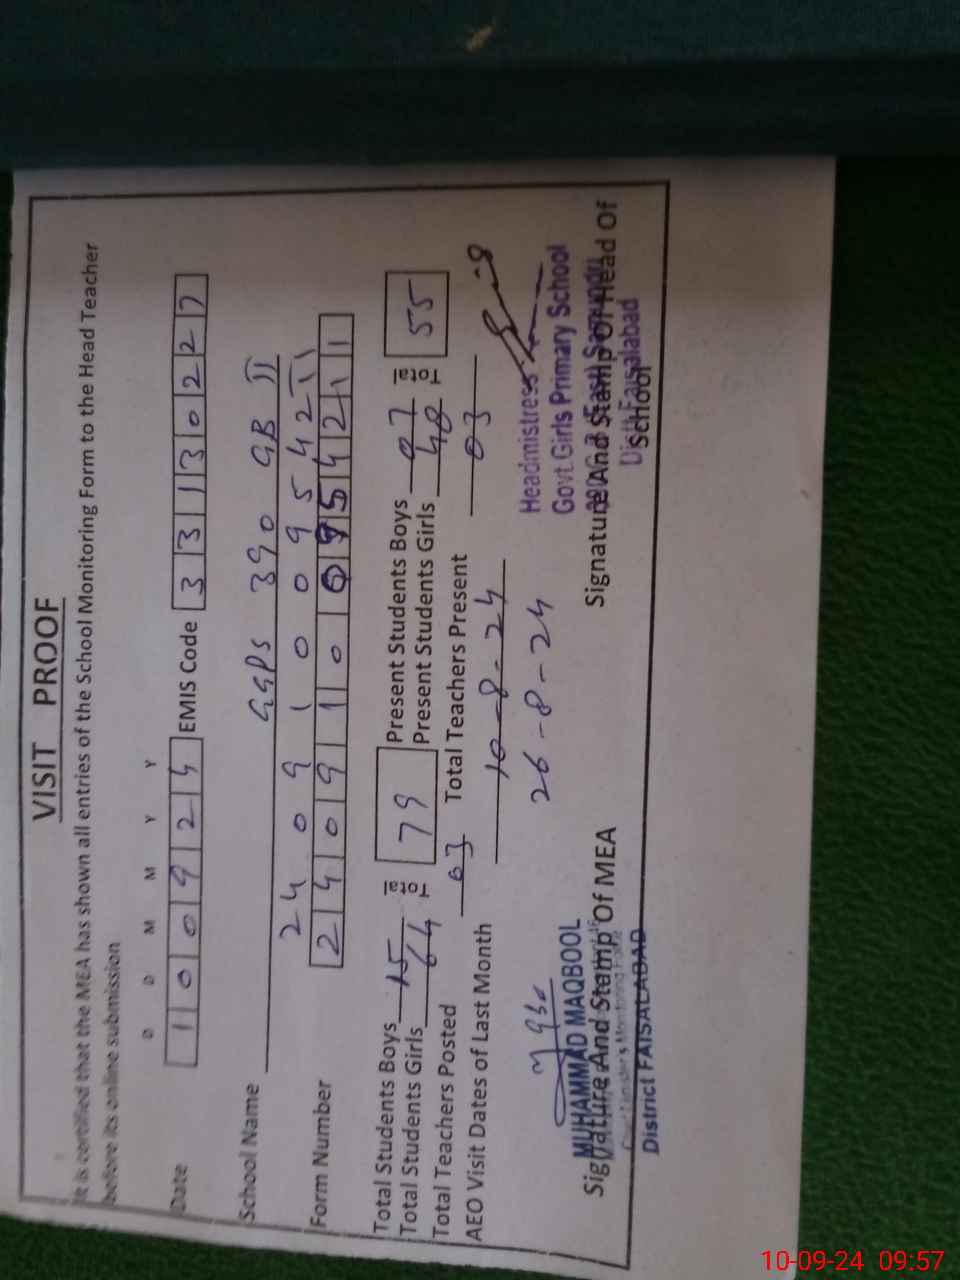 VISIT PROOF
It is certified that the MEA has shown all entries of the School Monitoring Form to the Head Teacher
before its online submission
D D M M Y Y
Date 1 0 0 9 2 4 EMIS Code 3 3 1 3 0 2 2 7
School Name GGPS 390 GB II
2 4 0 9 1 0 0 9 5 4 2 1 1
Form Number 2 4 0 9 1 0 0 9 5 4 2 1 1
Total Students Boys 15 Total 79 Present Students Boys 07 Total 55
Total Students Girls 64 Present Students Girls 48
Total Teachers Posted 03 Total Teachers Present 03
AEO Visit Dates of Last Month 10-8-24
26-8-24
MUHAMMAD MAQBOOL
Signature And Stamp Of MEA
District FAISALABAD
Headmistress
Govt. Girls Primary School
Signature And Stamp Of Head Of
School
Distt. Faisalabad
10-09-24 09:57